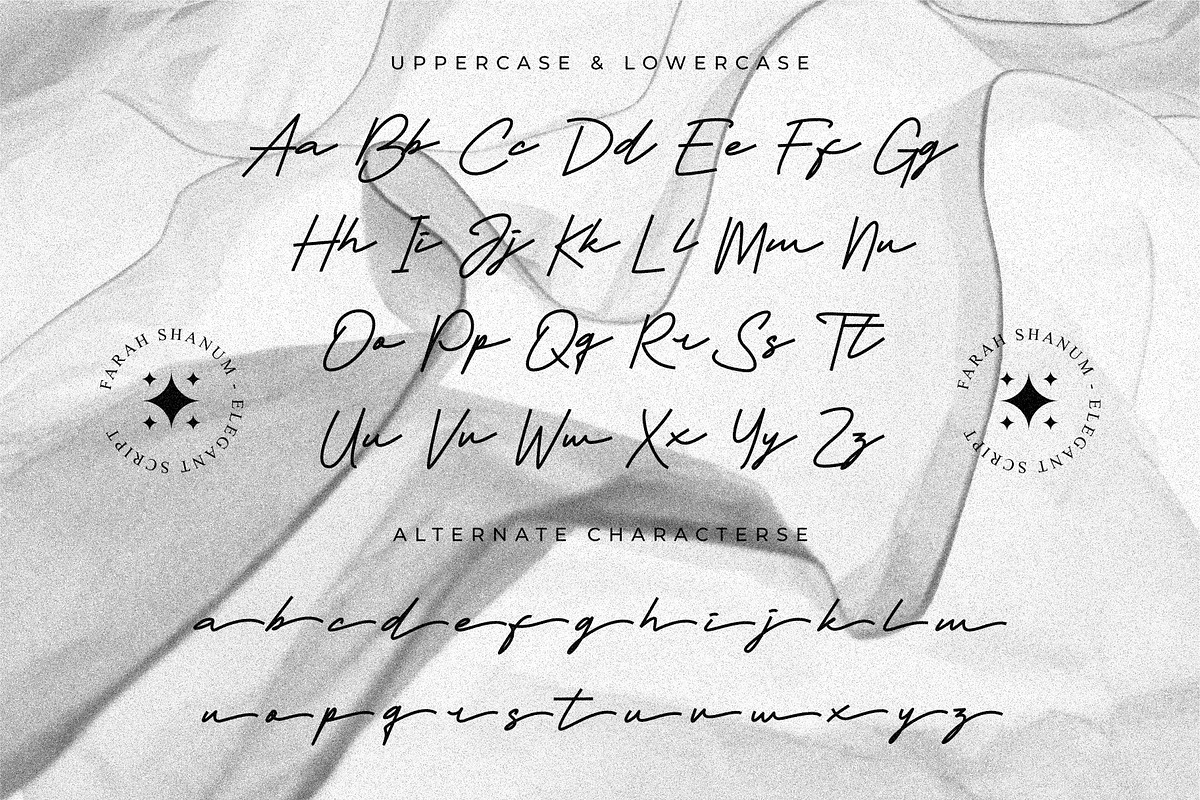 UPPERCASE & LOWERCASE
Aa Bb Cc Dd Ee Ff Gg
Hh Ii Jj Kk Ll Mm Nn
Oo Pp Qq Rr Ss Tt
FARAH SHANUM - ELEGANT SCRIPT
FARAH SHANUM - ELEGANT SCRIPT
Uu Vv Ww Xx Yy Zz
ALTERNATE CHARACTERSE
a b c d e f g h i j k l m
n o p q r s t u v w x y z